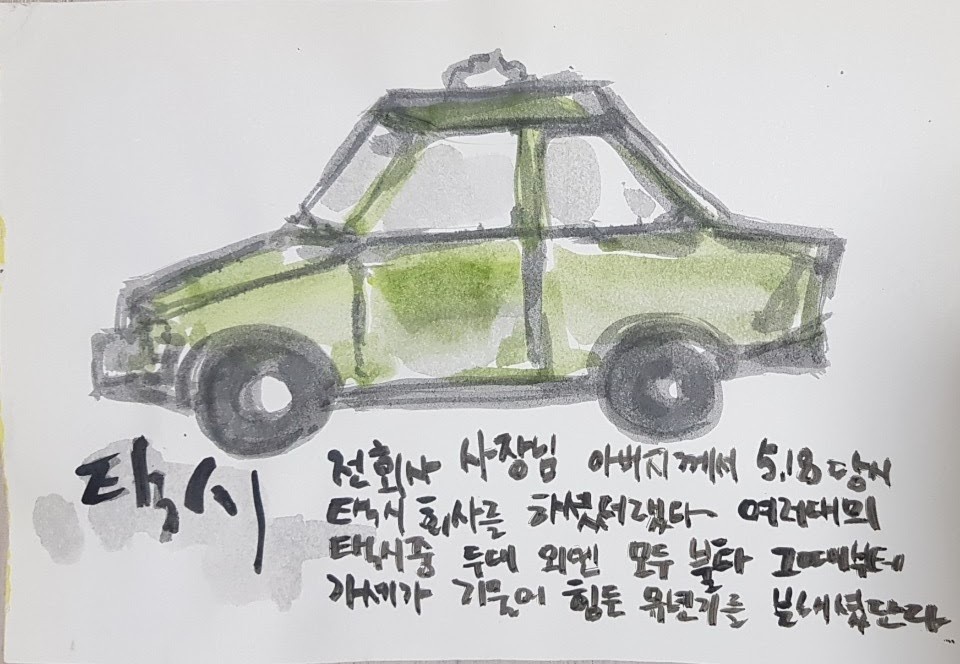 택시
전회사 사장님 아버지께서 5.18 당시
택시 회사를 하셨더랬다 여러대의
택시중 두대 외엔 모두 불타 그때부터
가세가 기울어 힘든 유년기를 보내셨단다